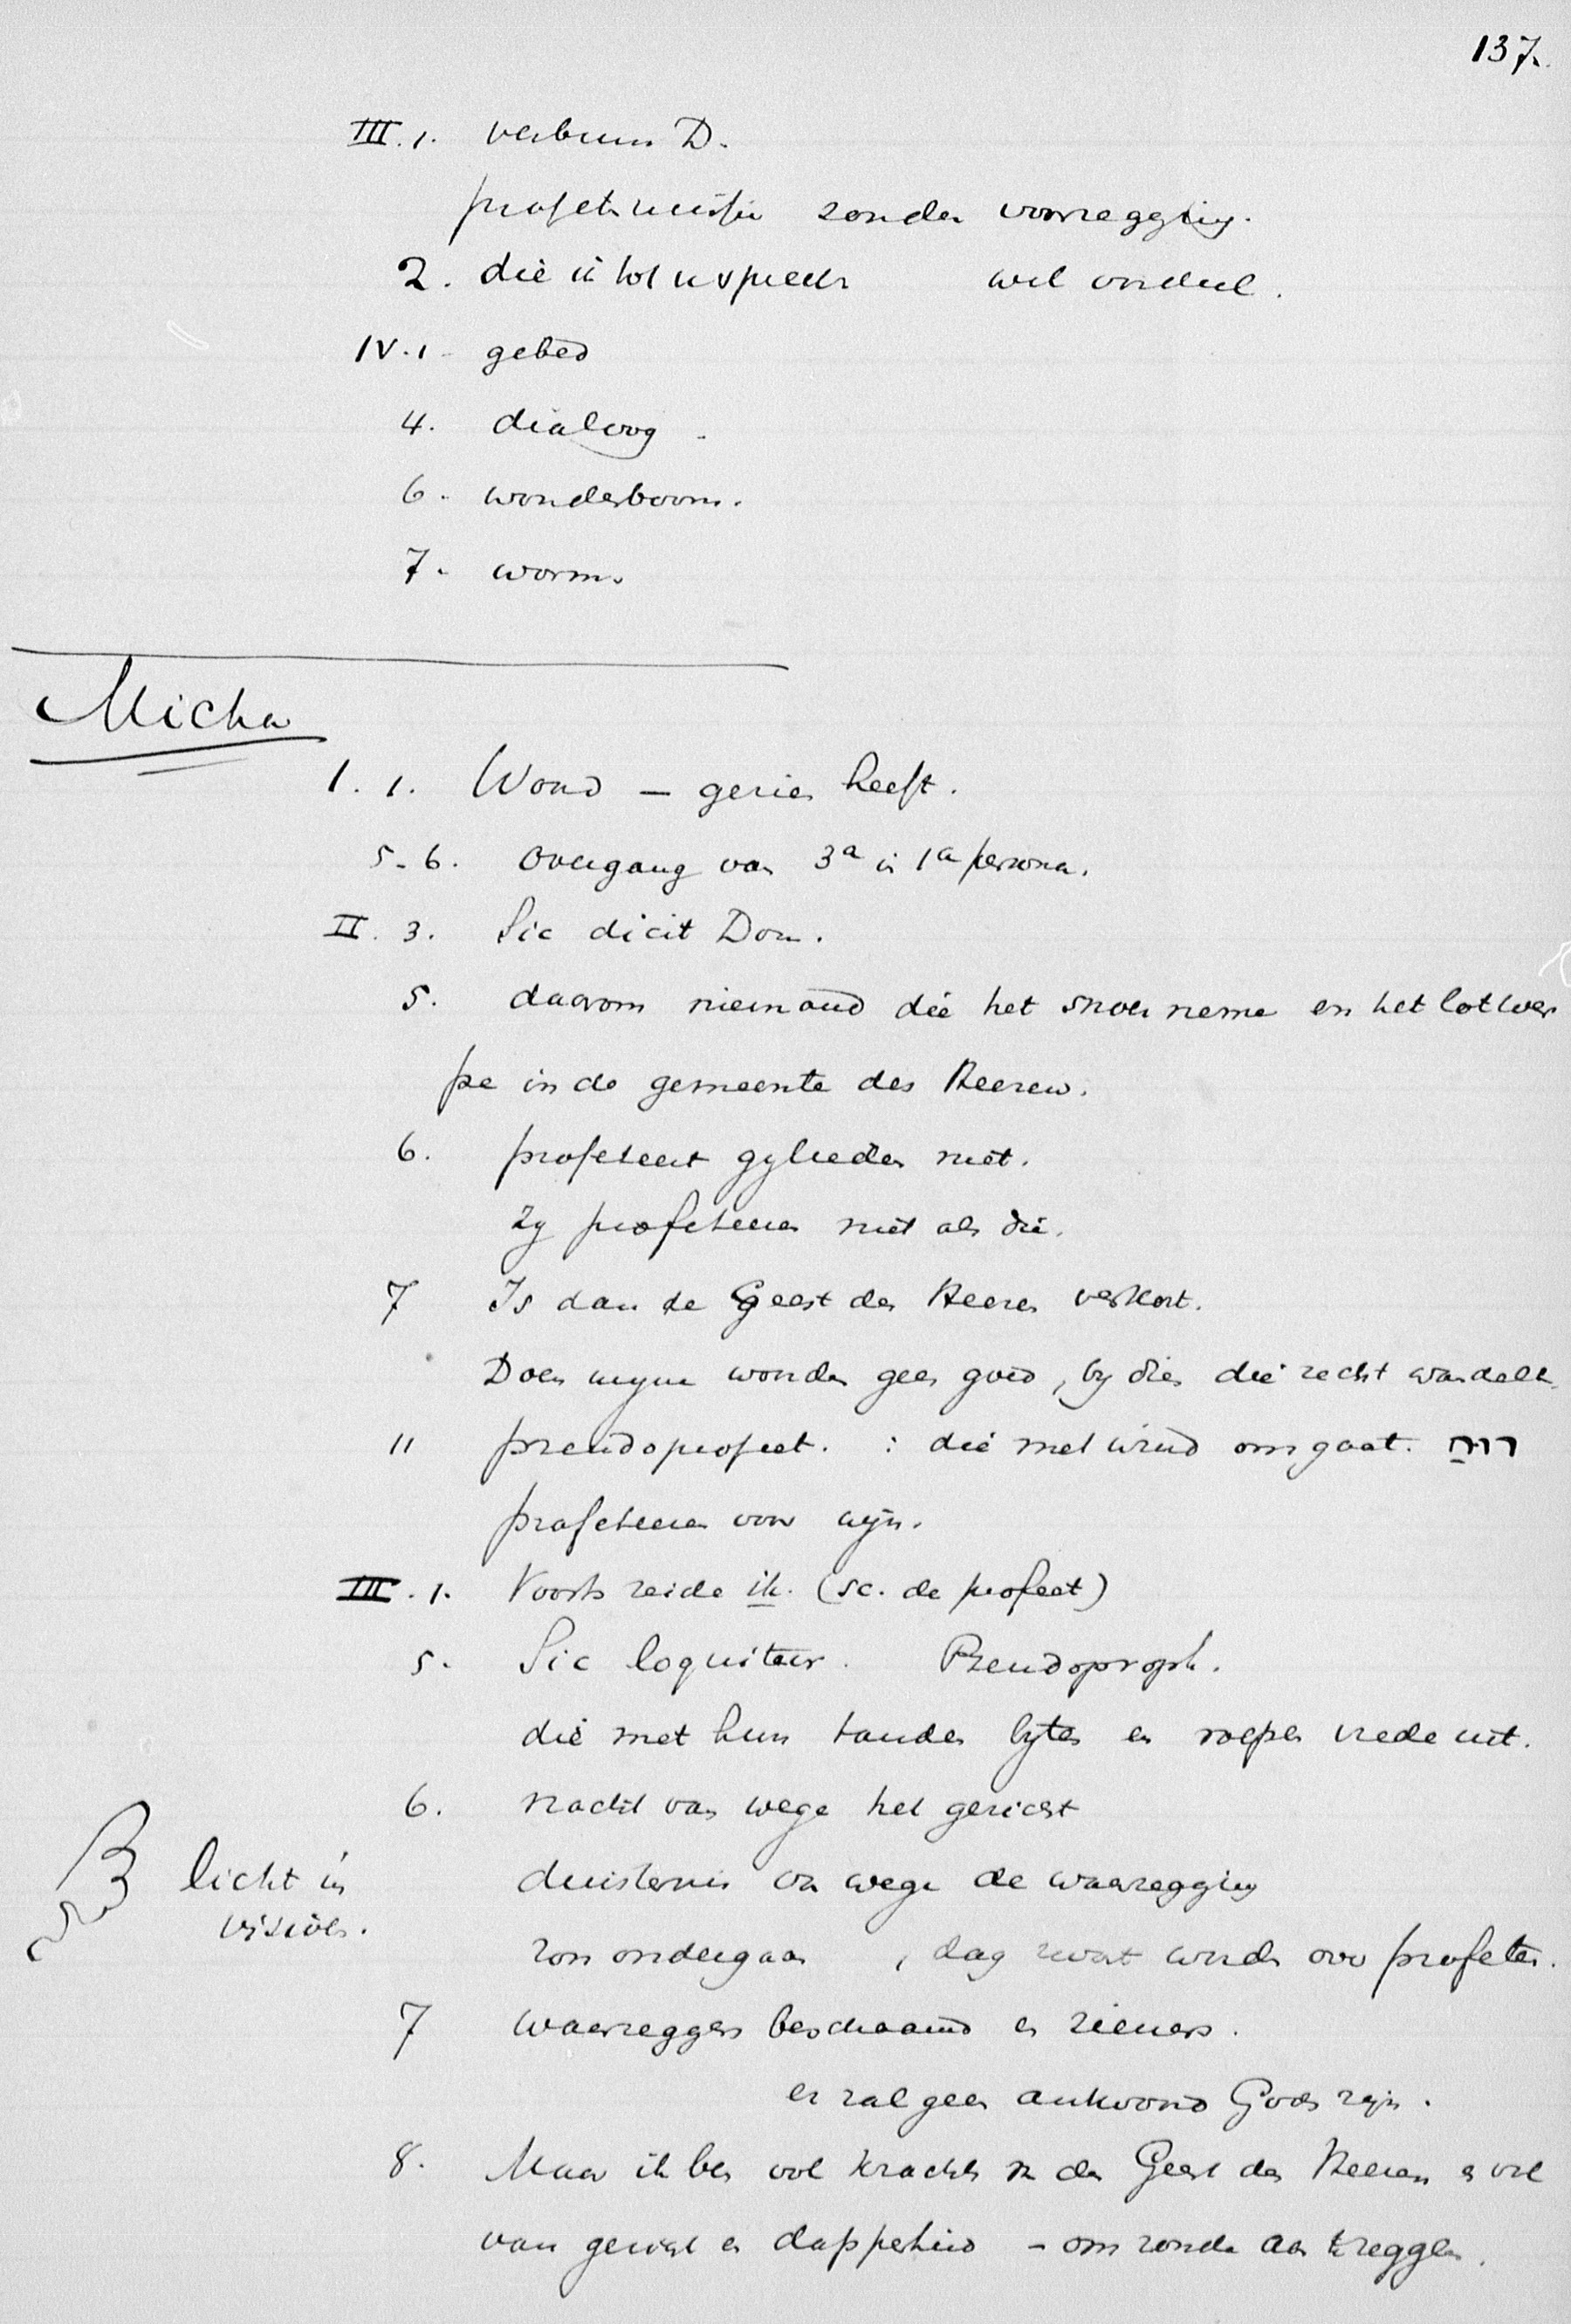 137.
III. 1. verbum D.
profetie zonder voorzegging.
2. die ik tot u spreek wel onderl.
IV. 1. gebed
4. dialoog.
6. wonderboom.
7. worm.
Micha
I. 1. Woord — gezien heeft.
5-6. overgang van 3a in 1a persona.
II. 3. Sic dicit Dom.
5. daarom niemand die het snoer neme en het lot wer
pe in de gemeente des Heeren.
6. profeteert gylieden niet.
zy profeteeren niet als die.
7 Is dan de Geest des Heeren verkort.
Doen myne woorden geen goed, by dien die recht wandelt.
11 pseudoprofeet. : die met wind omgaat. רוח
profeteeren voor wijn.
III. 1. Voorts zeide ik. (sc. de profeet)
5. Sic loquitur. Pseudoproph.
die met hun tanden byten en roepen vrede uit.
6. nacht van wege het gezicht
licht in
visioen.
duisternis van wege de waarzegging
zon ondergaan , dag zwart worden over profeten.
7 waarzeggers beschaamd en zieners.
er zal geen antwoord Gods zijn.
8. Maar ik ben vol kracht van den Geest des Heeren en vol
van gericht en dapperheid – om zonde aan te zeggen.